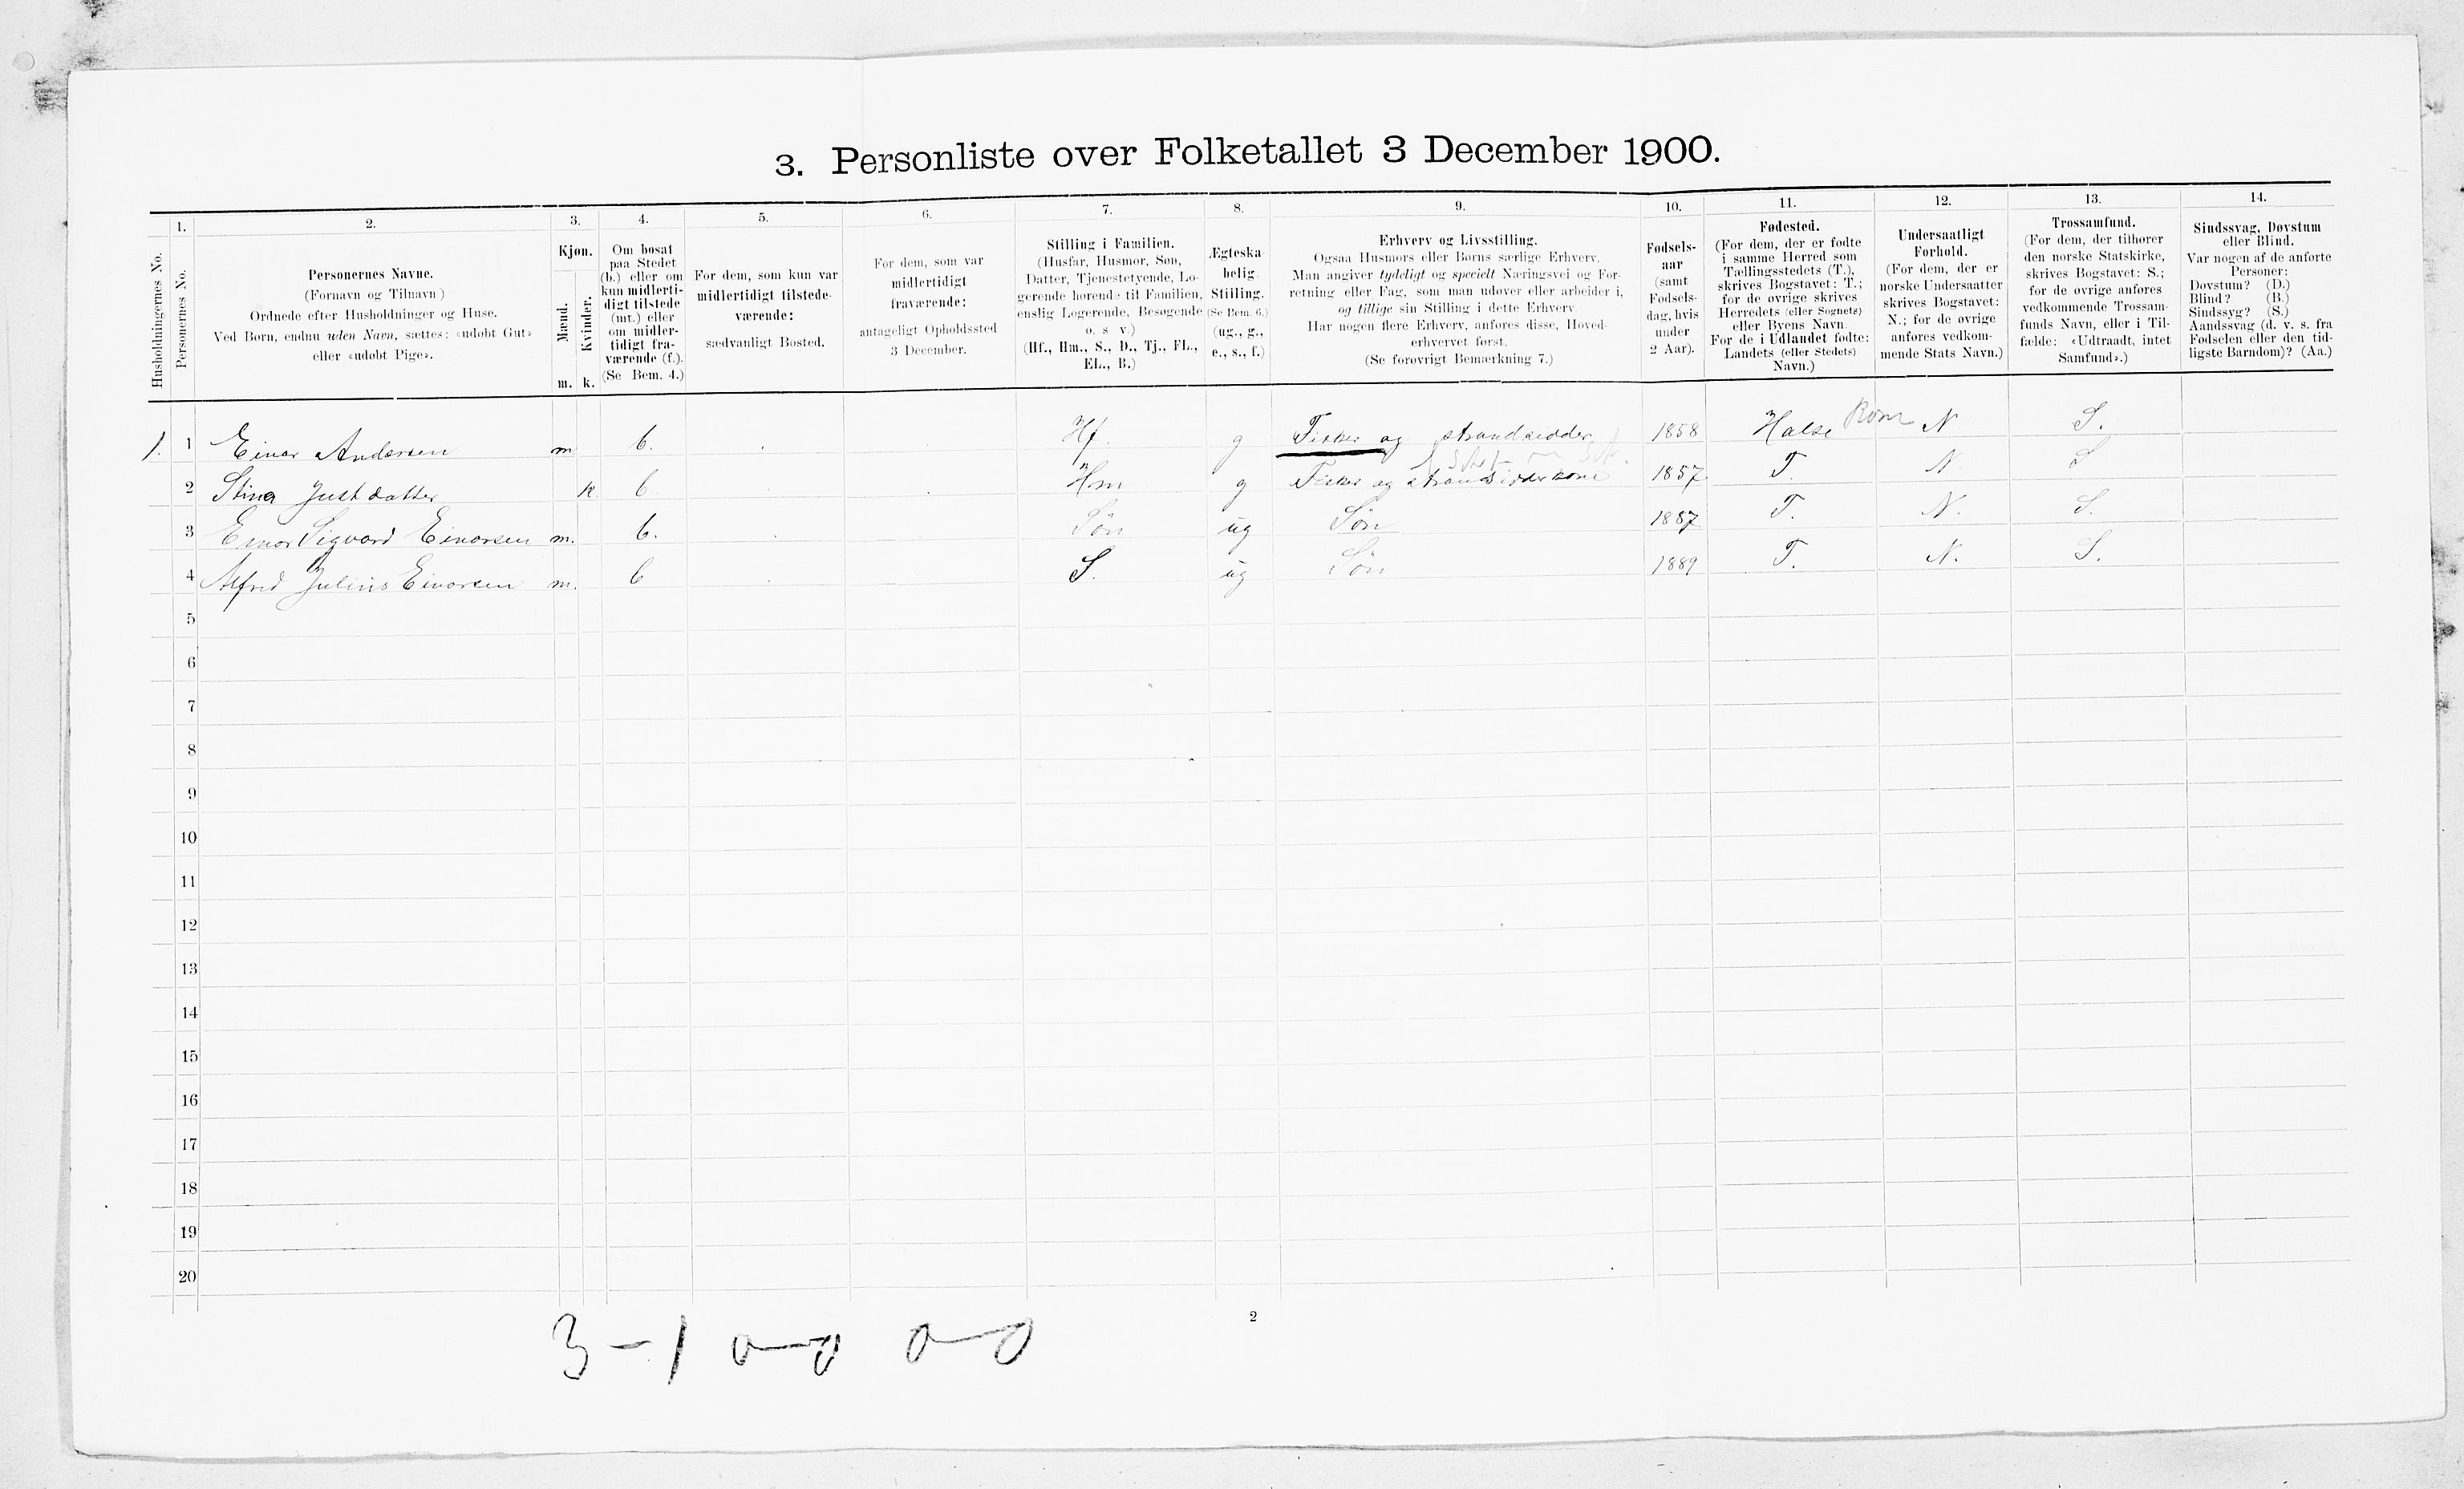 3. Personliste over Folketallet 3 December 1900.
Husholdningernes No.
1.
Personernes No.
2.
Personernes Navne.
(Fornavn og Tilnavn)
Ordnede efter Husholdninger og Huse.
Ved Børn, endnu uden Navn, sættes: «udøbt Gut»
eller «udøbt Pige».
3.
Kjøn.
Mænd.
Kvinder.
m. k.
4.
Om bosat
paa Stedet
(b.) eller om
kun midlerti-
digt tilstede
(mt.) eller
om midler-
tidigt fra-
værende (f.).
(Se Bem. 4.)
5.
For dem, som kun var
midlertidigt tilstede-
værende:
sædvanligt Bosted.
6.
For dem, som var
midlertidigt
fraværende:
antageligt Opholdssted
3 December.
7.
Stilling i Familien.
(Husfar, Husmor, Søn,
Datter, Tjenestetyende, Lo-
gerende hørende til Familien,
enslig Logerende, Besøgende
o. s v.)
(Hf., Hm., S., D., Tj., FL.,
EL., B.)
8.
Ægteska-
belig
Stilling.
(Se Bem. 6.)
(ug., g.,
e., s., f.)
9.
Erhverv og Livsstilling.
Ogsaa Husmors eller Børns særlige Erhverv.
Man angiver tydeligt og specielt Næringsvei og For-
retning eller Fag, som man udøver eller arbeider i,
og tillige sin Stilling i dette Erhverv.
Har nogen flere Erhverv, anføres disse, Hoved-
erhvervet først.
(Se forøvrigt Bemærkning 7.)
10.
Fødsels-
aar
(samt
Fødsels-
dag, hvis
under
2 Aar).
11.
Fødested.
(For dem, der er fødte
i samme Herred som
Tællingsstedets (T.),
skrives Bogstavet: T.;
for de øvrige skrives
Herredets (eller Sognets)
eller Byens Navn.
For de i Udlandet fødte:
Landets (eller Stedets)
Navn.)
12.
Undersaatligt
Forhold.
(For dem, der er
norske Undersaatter
skrives Bogstavet:
N.; for de øvrige
anføres vedkom-
mende Stats Navn.)
13.
Trossamfund.
(For dem, der tilhører
den norske Statskirke,
skrives Bogstavet: S.;
for de øvrige anføres
vedkommende Trossam-
funds Navn, eller i Til-
fælde: «Udtraadt, intet
Samfund».)
14.
Sindssvag, Døvstum
eller Blind.
Var nogen af de anførte
Personer:
Døvstum? (D.)
Blind? (B.)
Sindssyg? (S.)
Aandssvag (d. v. s. fra
Fødselen eller den tid-
ligste Barndom)? (Aa.)
1. 1 Einar Andersen m. b. Hf. g Fisker og strandsidder 1858 Halse Rom N S.
2 Stina Justdatter k b Hm g Fisker og strandsidderkone 1857 T. N S
3 Einar Sigvard Einarsen m. b. Søn ug Søn 1887 T. N. S.
4 Alfred Julius Einarsen m. b S. ug Søn 1889 T. N. S.
5
6
7
8
9
10
11
12
13
14
15
16
17
18
19
20
2
3 - 1 0-0 0-0